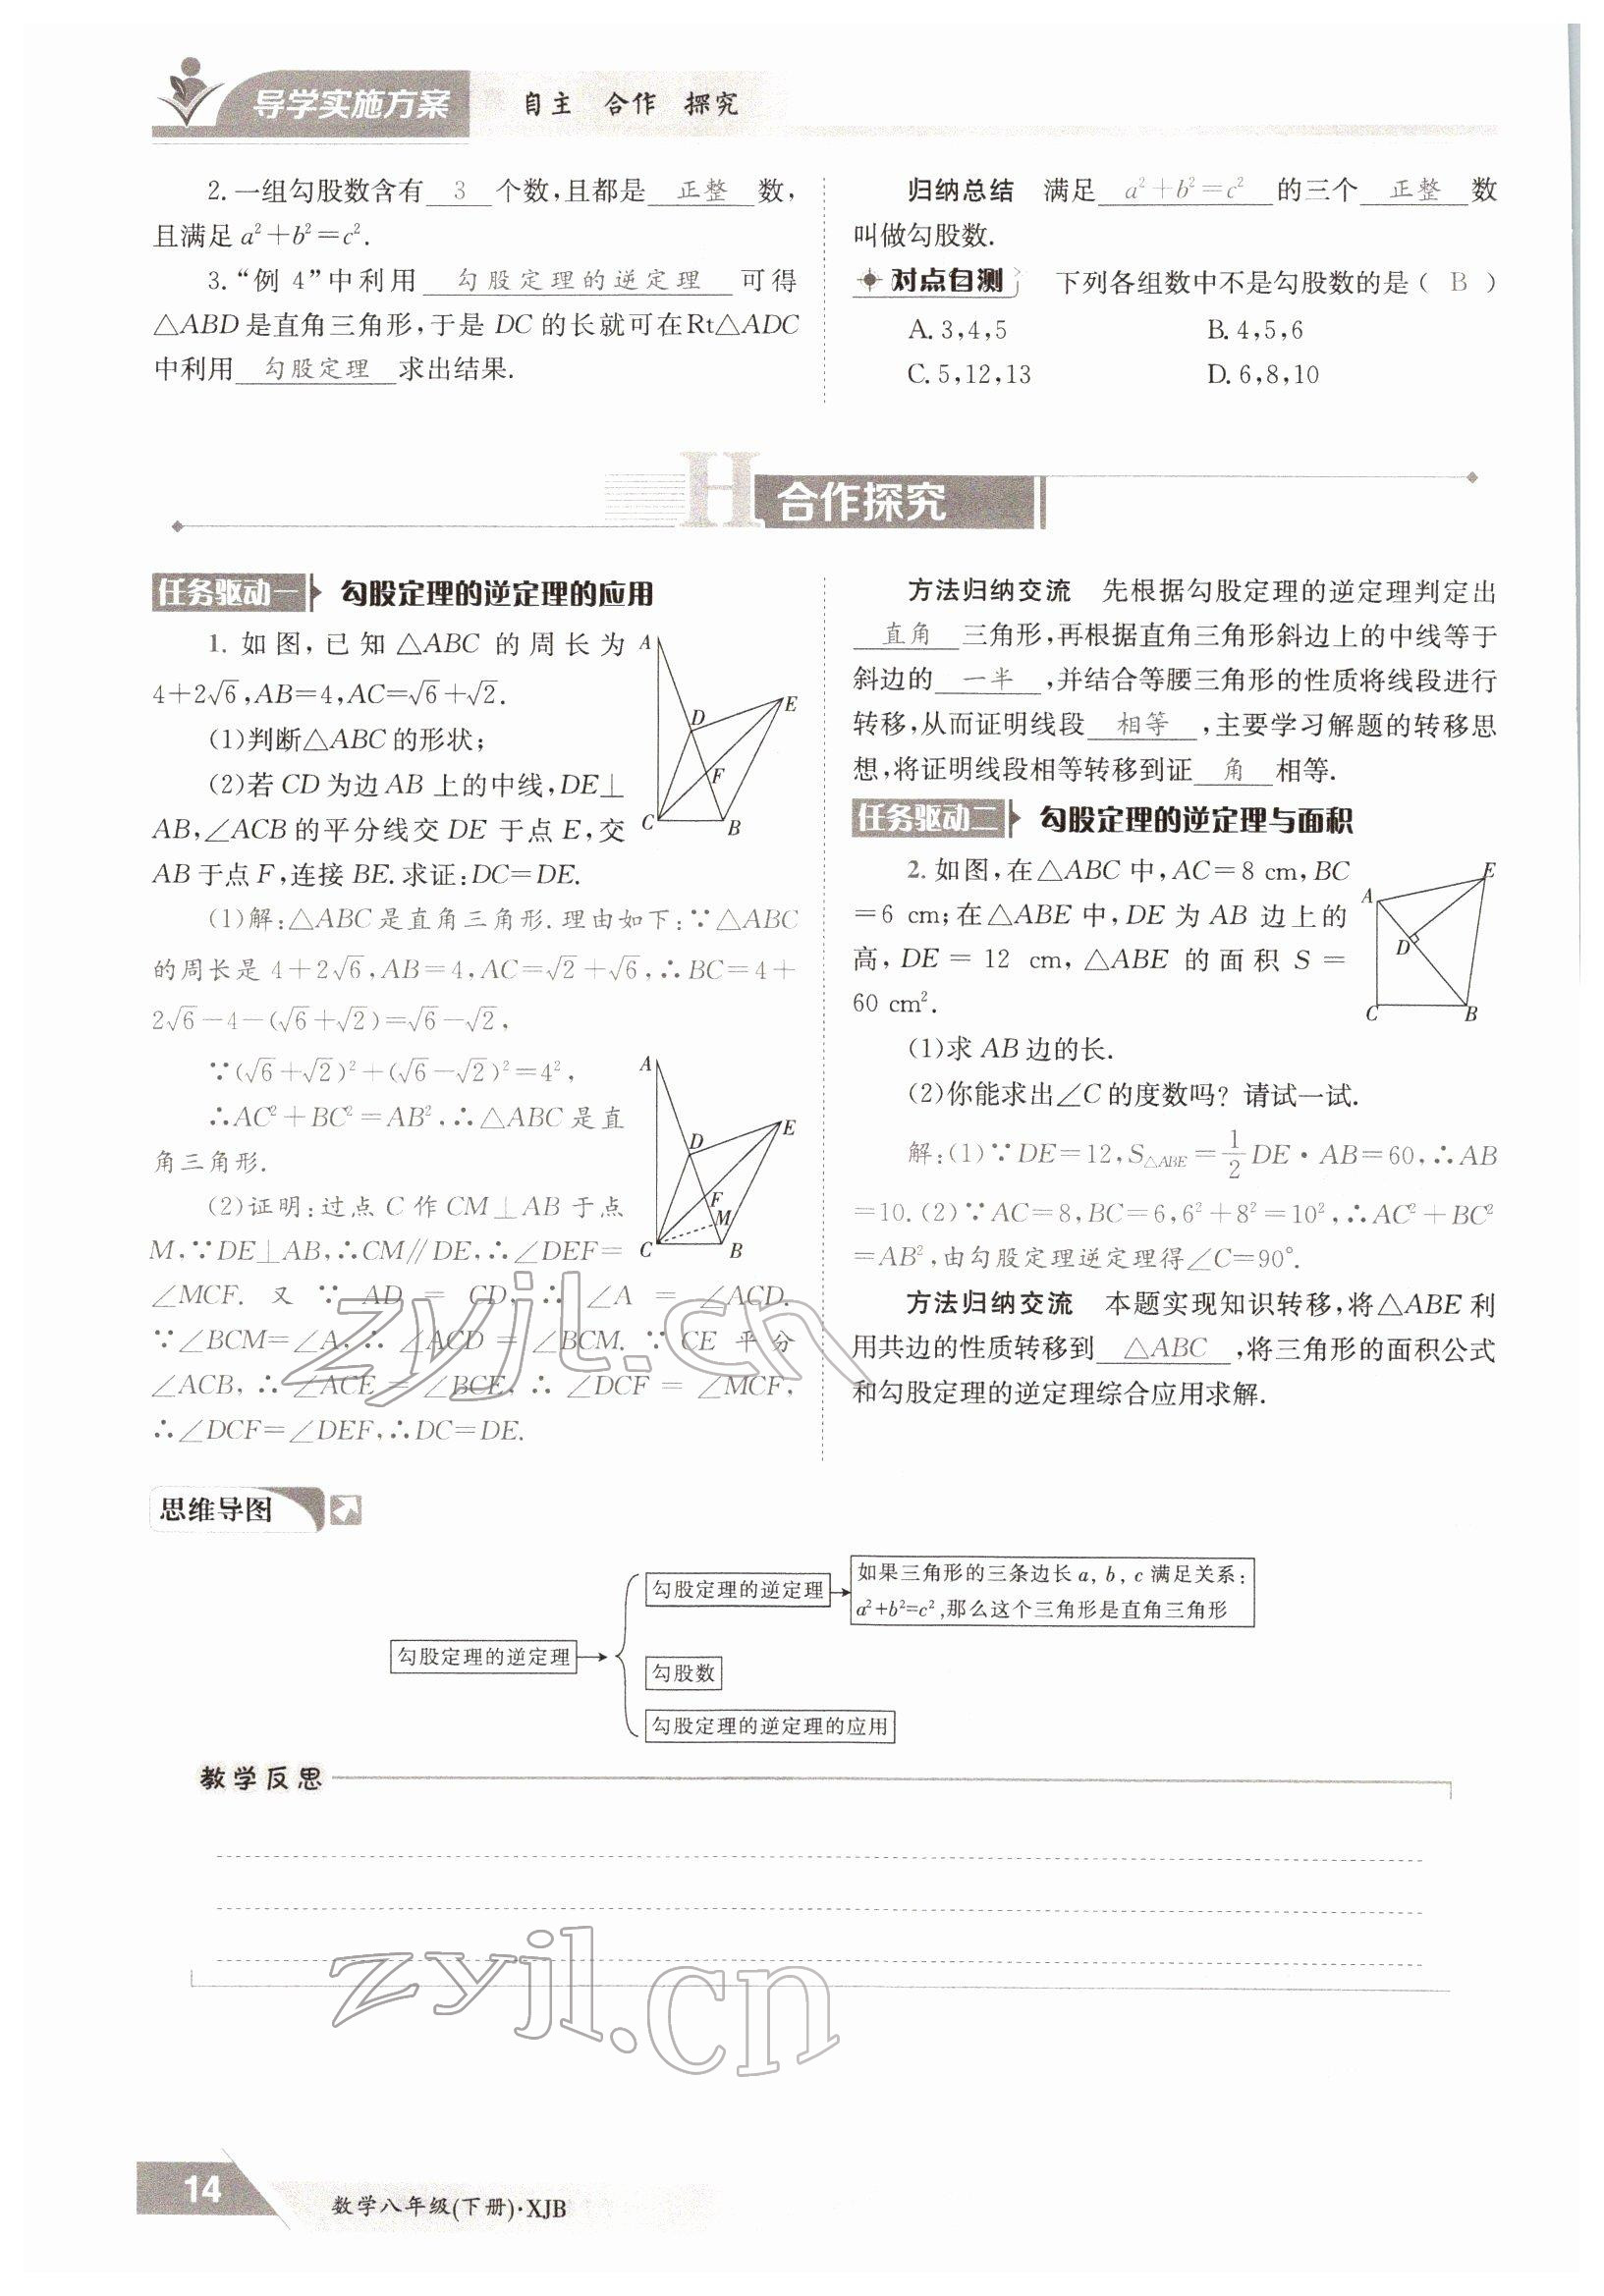 导学实施方案 自主 合作 探究
2.一组勾股数含有 3 个数,且都是 正整 数,
且满足 a²+b²=c².
3.“例 4”中利用 勾股定理的逆定理 可得
△ABD 是直角三角形,于是 DC 的长就可在Rt△ADC
中利用 勾股定理 求出结果.
归纳总结 满足 a²+b²=c² 的三个 正整 数
叫做勾股数.
对点自测 下列各组数中不是勾股数的是( B )
A. 3,4,5 B. 4,5,6
C. 5,12,13 D. 6,8,10
H 合作探究
任务驱动一 勾股定理的逆定理的应用
1. 如图,已知 △ABC 的周长为
4+2√6,AB=4,AC=√6+√2.
(1)判断△ABC 的形状;
(2)若 CD 为边 AB 上的中线,DE⊥
AB,∠ACB 的平分线交 DE 于点 E,交
AB 于点 F,连接 BE. 求证:DC=DE.
A
D
E
F
C
B
(1)解:△ABC 是直角三角形.理由如下:∵△ABC
的周长是 4+2√6,AB=4,AC=√2+√6,∴BC=4+
2√6-4-(√6+√2)=√6-√2,
∵(√6+√2)²+(√6-√2)²=4²,
∴AC²+BC²=AB²,∴△ABC 是直
角三角形.
(2)证明:过点 C 作 CM⊥AB 于点
M,∵DE⊥AB,∴CM∥DE,∴∠DEF=
∠MCF. 又 ∵ AD = CD, ∴ ∠A = ∠ACD.
∵∠BCM=∠A,∴ ∠ACD = ∠BCM. ∵ CE 平分
∠ACB, ∴ ∠ACE = ∠BCE, ∴ ∠DCF = ∠MCF,
∴∠DCF=∠DEF,∴DC=DE.
A
D
E
F
M
C
B
方法归纳交流 先根据勾股定理的逆定理判定出
直角 三角形,再根据直角三角形斜边上的中线等于
斜边的 一半 ,并结合等腰三角形的性质将线段进行
转移,从而证明线段 相等 ,主要学习解题的转移思
想,将证明线段相等转移到证 角 相等.
任务驱动二 勾股定理的逆定理与面积
2. 如图,在△ABC 中,AC=8 cm,BC
=6 cm;在△ABE 中,DE 为 AB 边上的
高,DE = 12 cm,△ABE 的面积 S =
60 cm².
(1)求 AB 边的长.
(2)你能求出∠C 的度数吗? 请试一试.
A
E
D
C
B
解:(1)∵DE=12,S△ABE=1/2 DE·AB=60,∴AB
=10.(2)∵AC=8,BC=6,6²+8²=10²,∴AC²+BC²
=AB²,由勾股定理逆定理得∠C=90°.
方法归纳交流 本题实现知识转移,将△ABE 利
用共边的性质转移到 △ABC ,将三角形的面积公式
和勾股定理的逆定理综合应用求解.
思维导图
勾股定理的逆定理
勾股定理的逆定理
如果三角形的三条边长 a, b, c 满足关系:
a²+b²=c²,那么这个三角形是直角三角形
勾股数
勾股定理的逆定理的应用
教学反思
zyjl.cn
zyjl.cn
14
数学八年级(下册)·XJB